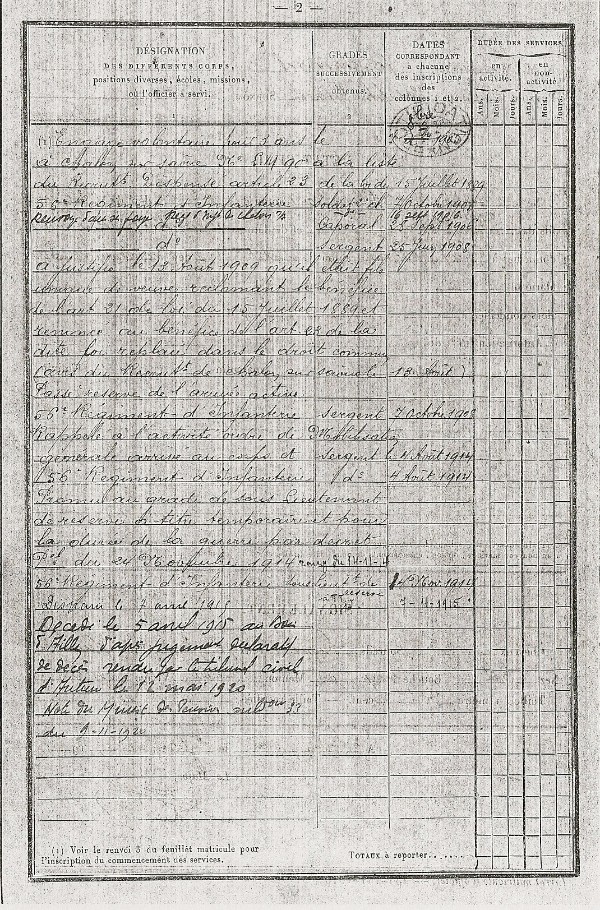 — 2 —
DÉSIGNATION
DES DIFFÉRENTS CORPS,
positions diverses, écoles, missions,
où l'officier a servi.
1
GRADES
SUCCESSIVEMENT
obtenus.
DATES
CORRESPONDANT
à chacune
des inscriptions
des
colonnes 1 et 2.
DURÉE DES SERVICES
en
activité.
en
non-
activité
Ans.
Mois.
Jours.
Ans.
Mois.
Jours.
(1) Engagé volontaire pour 3 ans le
à Chalon sur Saône à la liste
du Recrutt Dispensé article 23 de la loi du 15 Juillet 1889
56e Régiment d'Infanterie soldat 2e cl. 7 Octobre
16 sept 1906
do Caporal
do Sergent 25 1908
A justifié le 13 Août 1909 qu'il était fils
de veuve réclamant le bénéfice
de l'art 21 de loi du 15 Juillet 1889 et
renonce au bénéfice de l'art 23 de la
dite loi replacé dans le droit commun
du Recrutt de Chalon sur Saône le 13 Août
Passé réserve de l'armée active
56e Régiment d'Infanterie Sergent 7 Octobre 1908
Rappelé à l'activité ordre de Mobilisation
générale arrivé au corps et Sergent le 4 Août 1914
56e Régiment d'Infanterie do 4 Août 1914
Promu au grade de sous Lieutenant
de réserve à titre temporaire pour
la durée de la guerre par décret
du 24 Novembre 1914 rang du 14-11-14
56e Régiment d'Infanterie sous Lieutt de réserve 14 Nov. 1914
Disparu le 7 avril 1915 7-4-1915
Décédé le 5 avril 1915 au Bois
d'Ailly d'après jugement déclaratif
de décès rendu par le tribunal civil
d'Autun le 12 mai 1920
Note du des Pensions
du 9-11-1920
(1) Voir le renvoi 3 du feuillet matricule pour
l'inscription du commencement des services.
TOTAUX à reporter.......